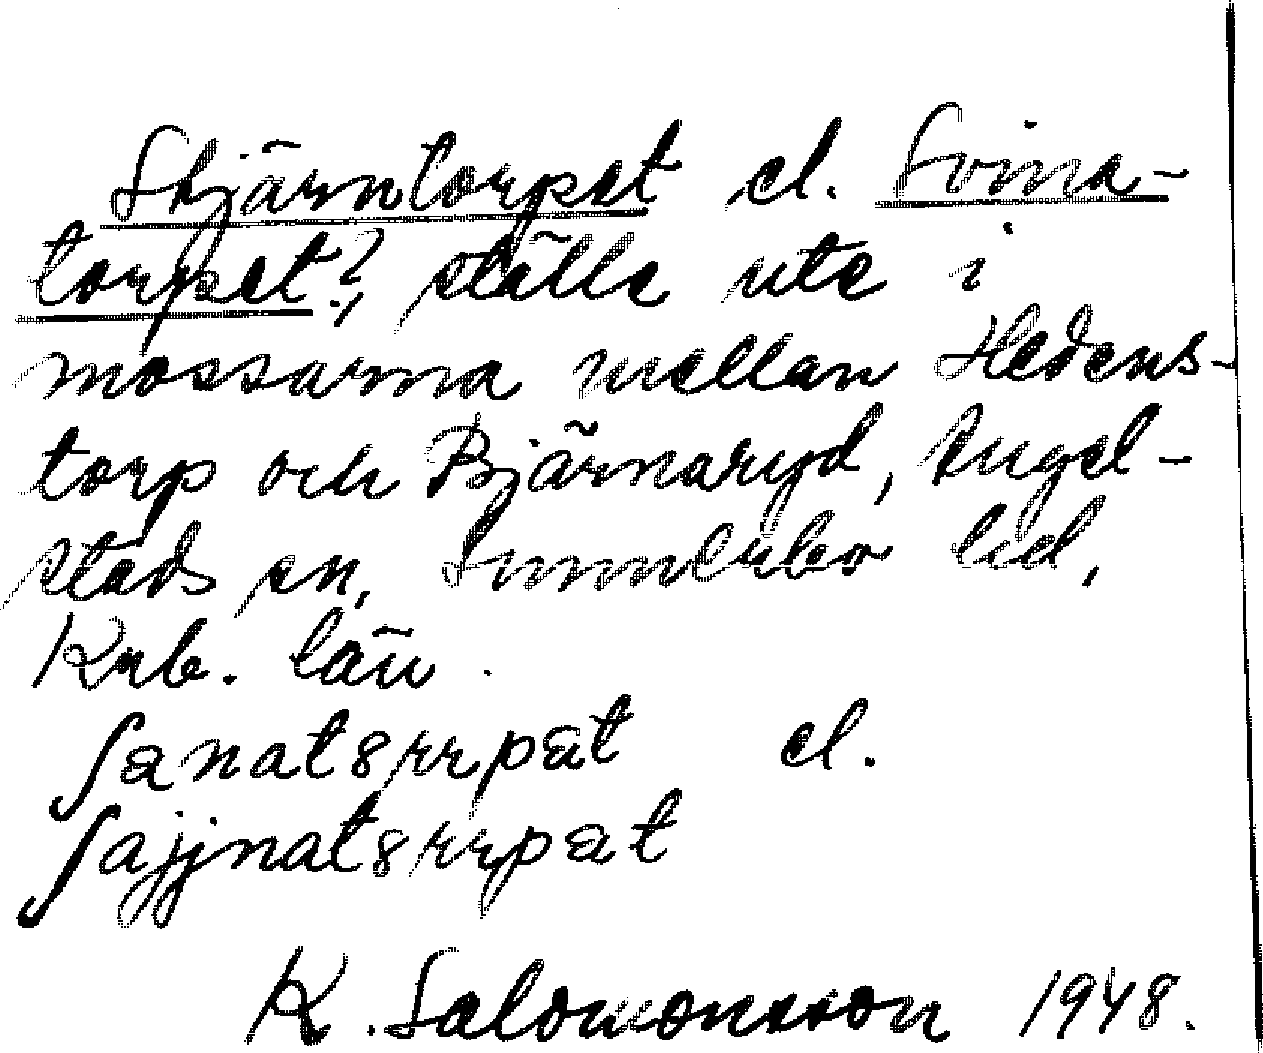 Skjärntorpet el. Svina-
torpet?, ställe ute i
mossarna mellan Hedens-
torp och Bjärnaryd, Angel-
stads sn, Sunnerbo hd,
Knb. län.
ʃænatɞrrpæt el.
ʃajjnatɞrrpæt
K. Salomonsson 1948.